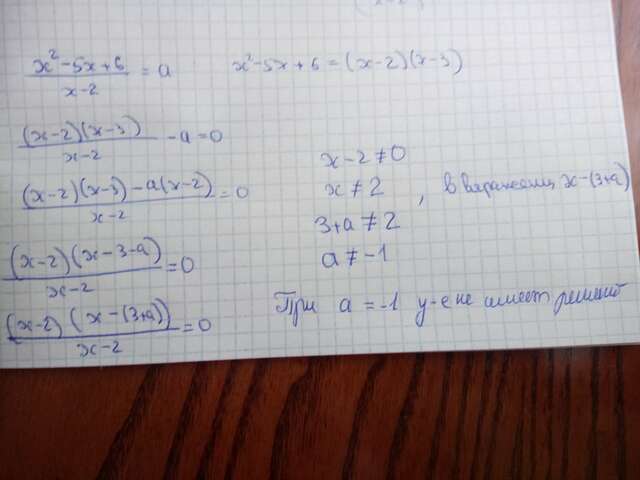 x²-5x+6 / x-2 = a
x²-5x+6 = (x-2)(x-3)
(x-2)(x-3) / x-2 - a = 0
(x-2)(x-3) - a(x-2) / x-2 = 0
(x-2)(x-3-a) / x-2 = 0
(x-2)(x-(3+a)) / x-2 = 0
x-2≠0
x≠2, в выражении x-(3+a)
3+a≠2
a≠-1
При a=-1 у-е не имеет решений